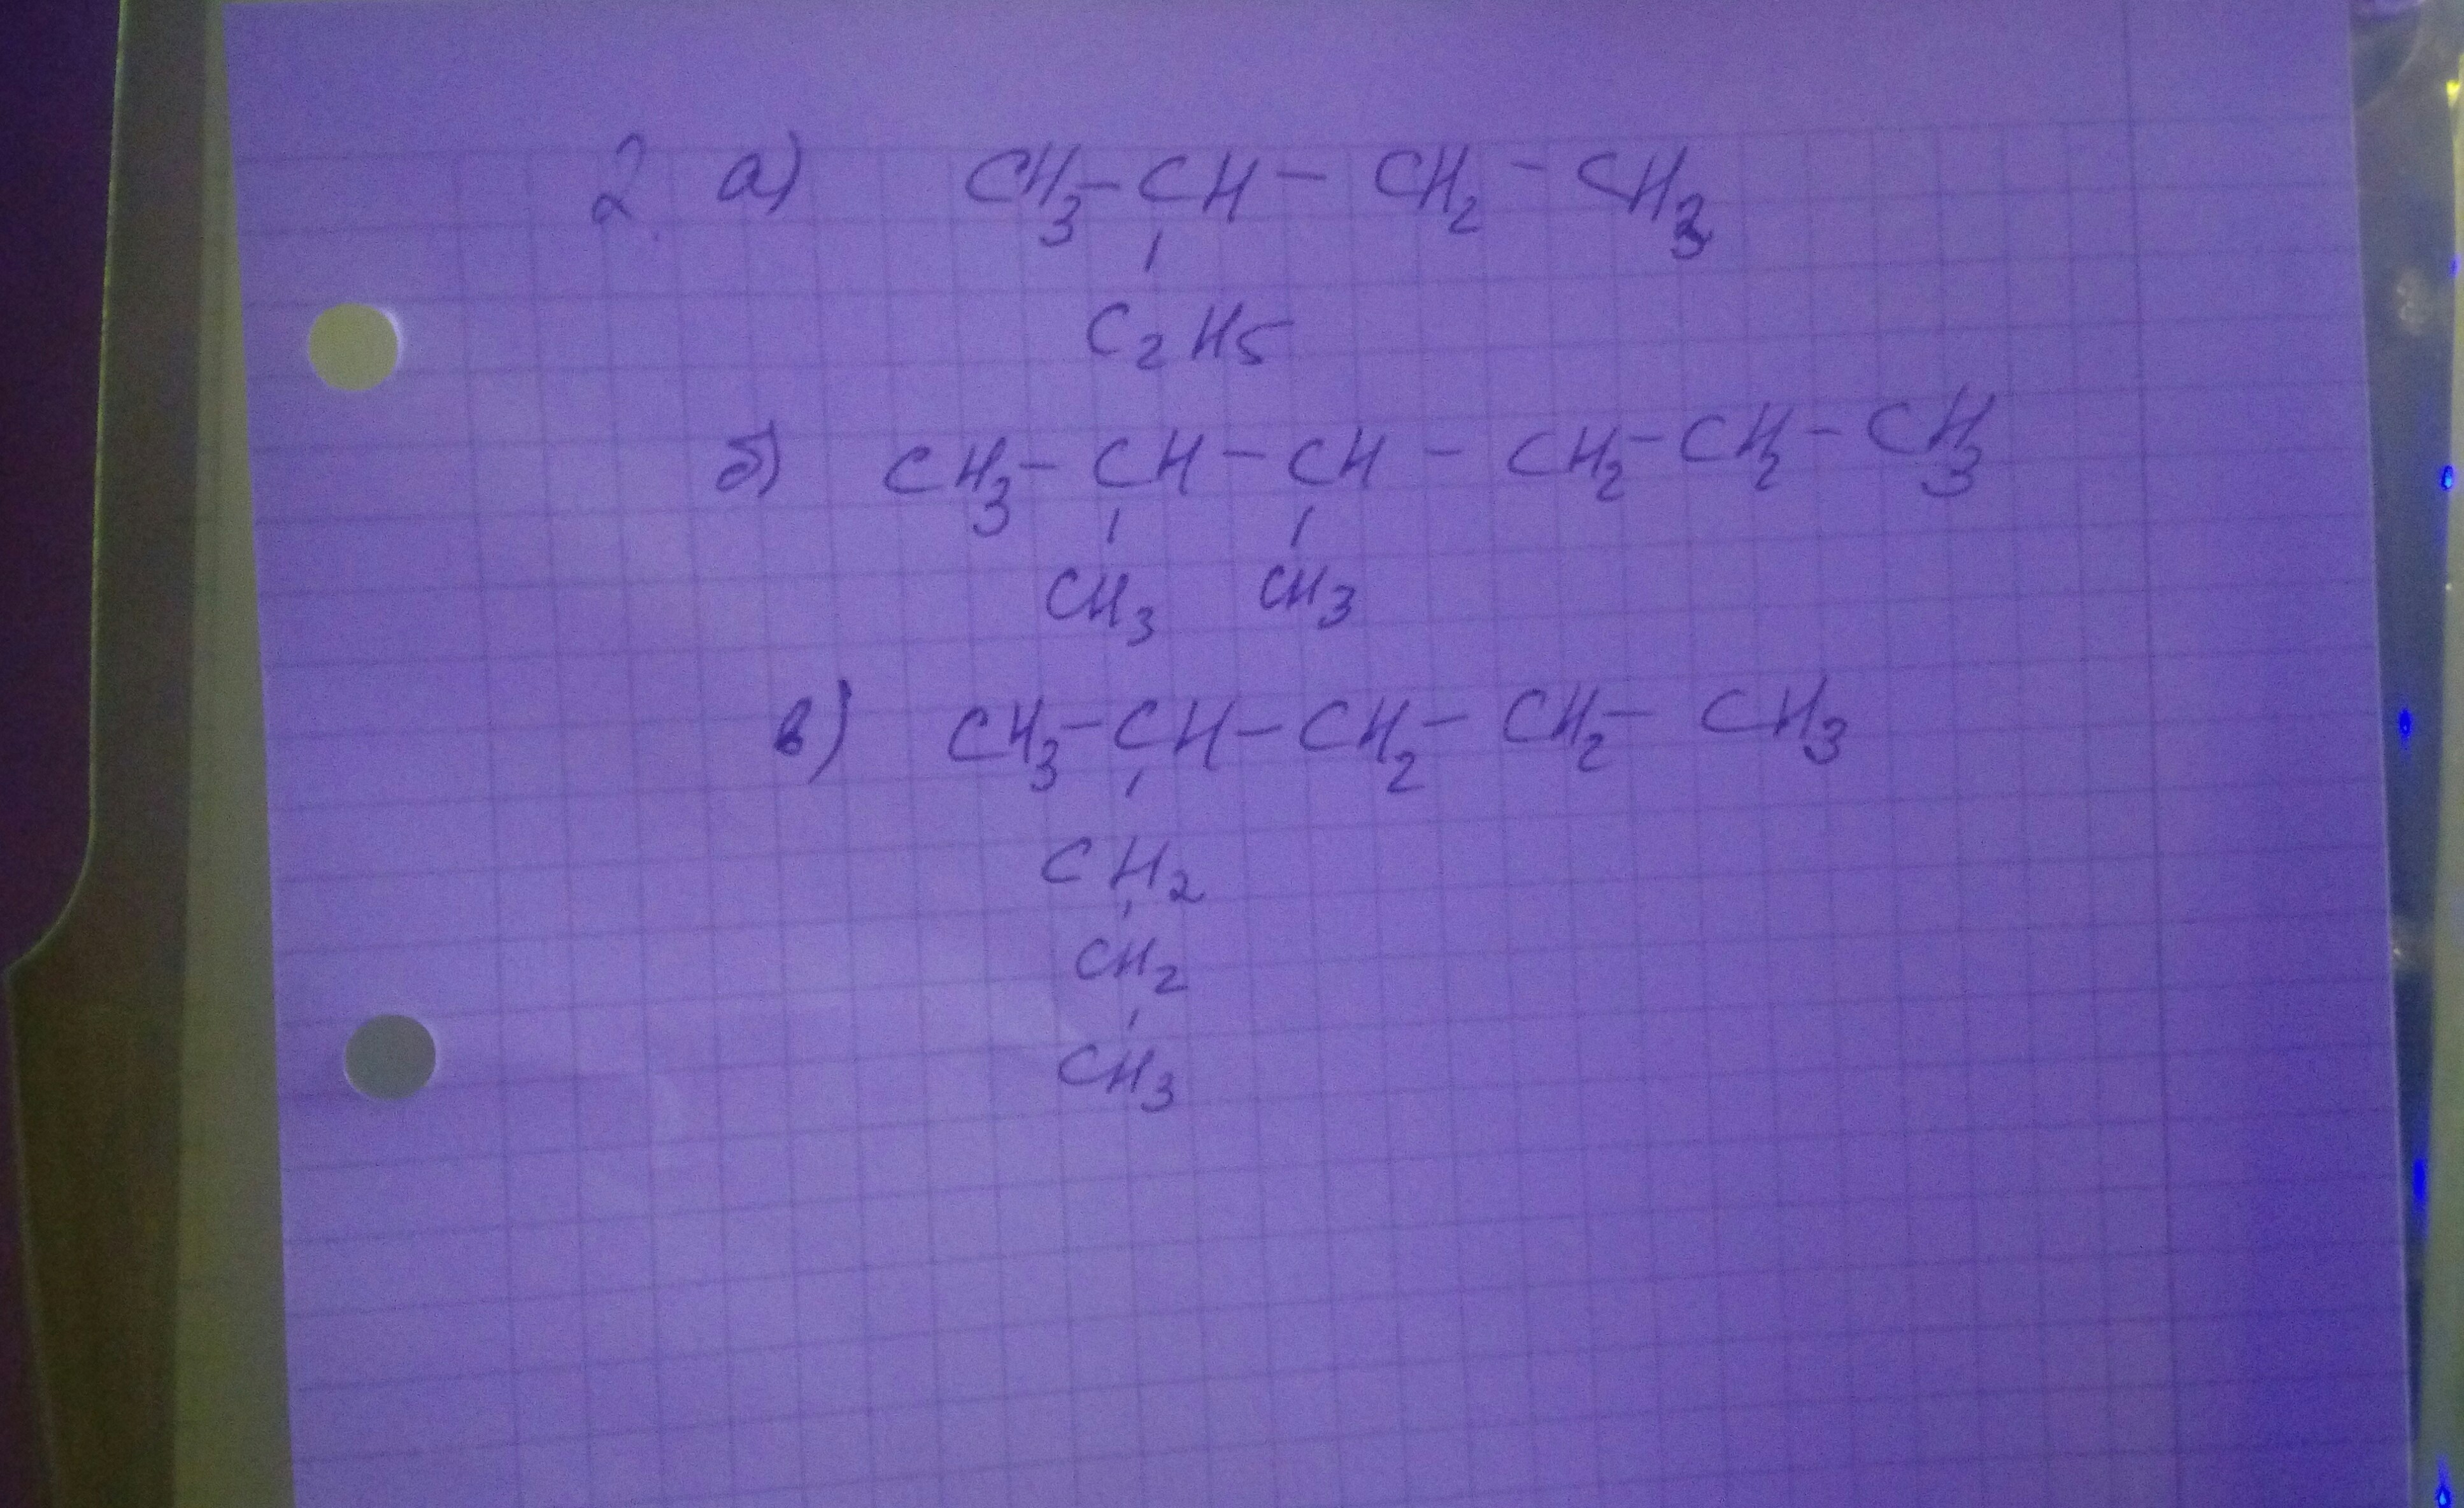 2. а) CH3 - CH - CH2 - CH3
C2H5
б) CH3 - CH - CH - CH2 - CH2 - CH3
CH3 CH3
в) CH3 - CH - CH2 - CH2 - CH3
CH2
CH2
CH3